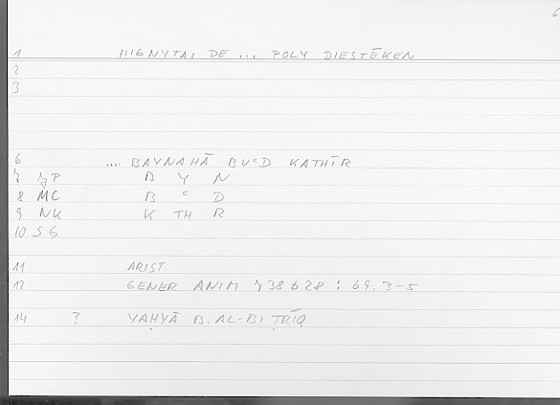 1 MIGNYTAI DE ... POLY DIESTĒKEN
2
3
6 .... BAYNAHĀ BUʿD KATHĪR
7 ʒP B Y N
8 MC B ʿ D
9 NK K TH R
10 SG
11 ARIST
12 GENER ANIM 738 b 28 : 69.3-5
14 ? YAḤYĀ B. AL-BIṬRĪQ